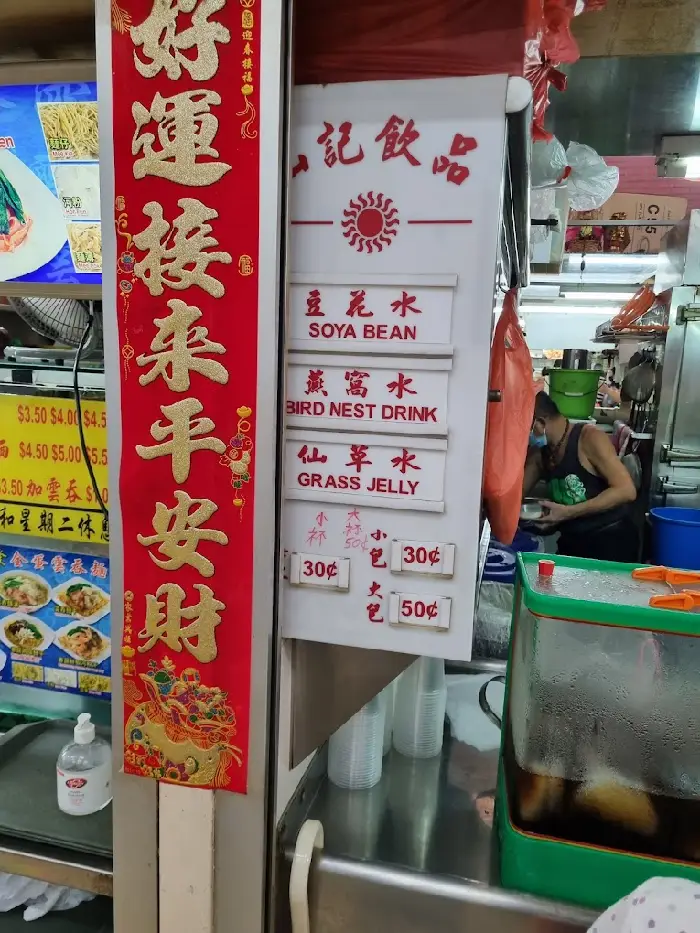 好運接來平安財
迎春接福
記飲品
豆花水
SOYA BEAN
燕窩水
BIRD NEST DRINK
仙草水
GRASS JELLY
小杯
大杯
50¢
30¢
小包
30¢
大包
50¢
$3.50 $4.00 $4.5
$4.50 $5.00
3.50 加雲吞
和星期二休
金蛋雲吞麵